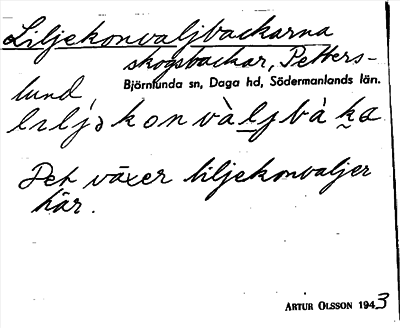 Liljekonvaljbackarna
skogsbackar, Petters-
lund Björnlunda sn, Daga hd, Södermanlands län.
lıljəkonvàljbàka
Det växer liljekonvaljer
här.
ARTUR OLSSON 1943